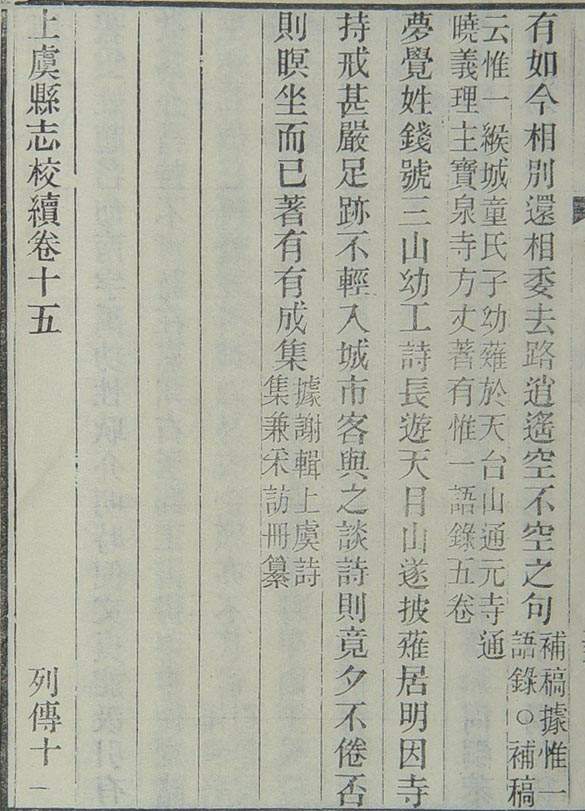 有如今相別還相委去路逍遙空不空之句補稿據惟一
語錄○補稿
云惟一緱城童氏子幼薙於天台山通元寺通
曉義理主寶泉寺方丈著有惟一語錄五卷
夢覺姓錢號三山幼工詩長遊天目山遂披薙居明因寺
持戒甚嚴足跡不輕入城市客與之談詩則竟夕不倦否
則瞑坐而已著有有成集據謝輯上虞詩
集兼采訪冊纂
上虞縣志校續卷十五 列傳十一